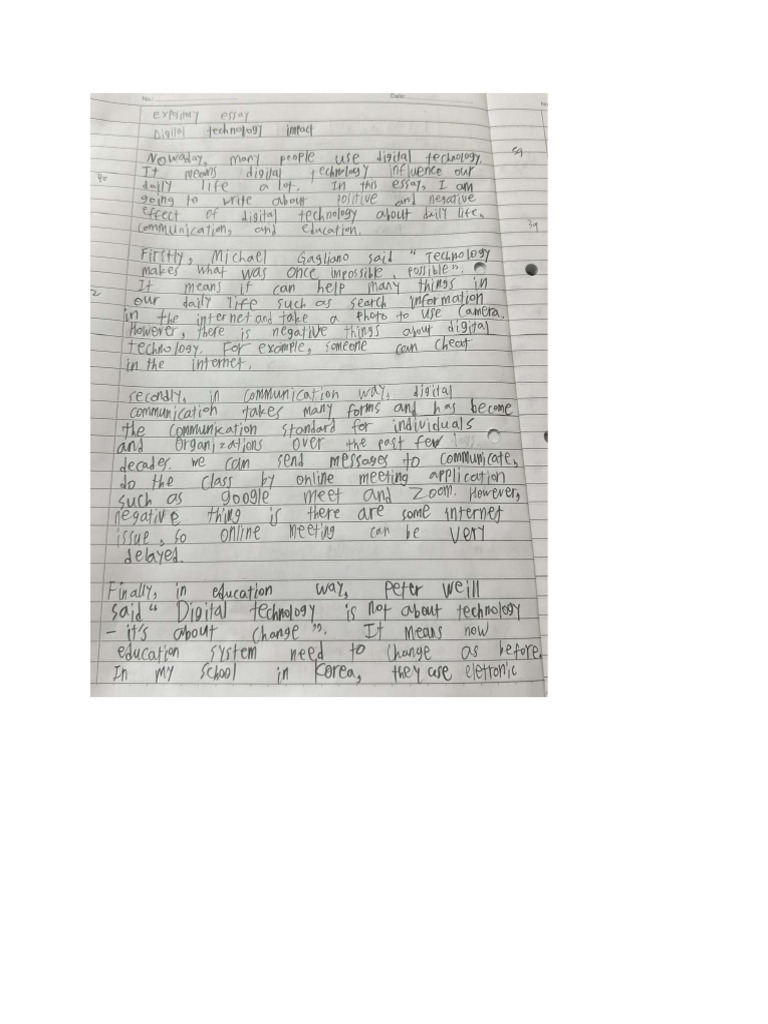 No.
Date
No
Expository essay
Digital technology impact
Nowaday, many people use digital technology.
It means digital technology influence our
daily life a lot. In this essay, I am
going to write about politive and negative
effect of digital technology about daily life,
communication, and education.
Firstly, Michael Gagliano said " Technology
makes what was once impossible, possible".
It means it can help many things in
our daily life such as search information
in the internet and take a photo to use camera.
However, there is negative things about digital
technology. For example, someone can cheat
in the internet.
secondly, in communication way, digital
communication takes many forms and has become
the communication standard for individuals
and organizations over the past few
decades. we can send messages to communicate,
do the class by online meeting application
such as google meet and zoom. However,
negative thing is there are some internet
issue, so online meeting can be very
delayed.
Finally, in education way, peter weill
said " Digital technology is not about technology
- it's about change ". It means now
education system need to change as before.
In my school in Korea, they use eletronic